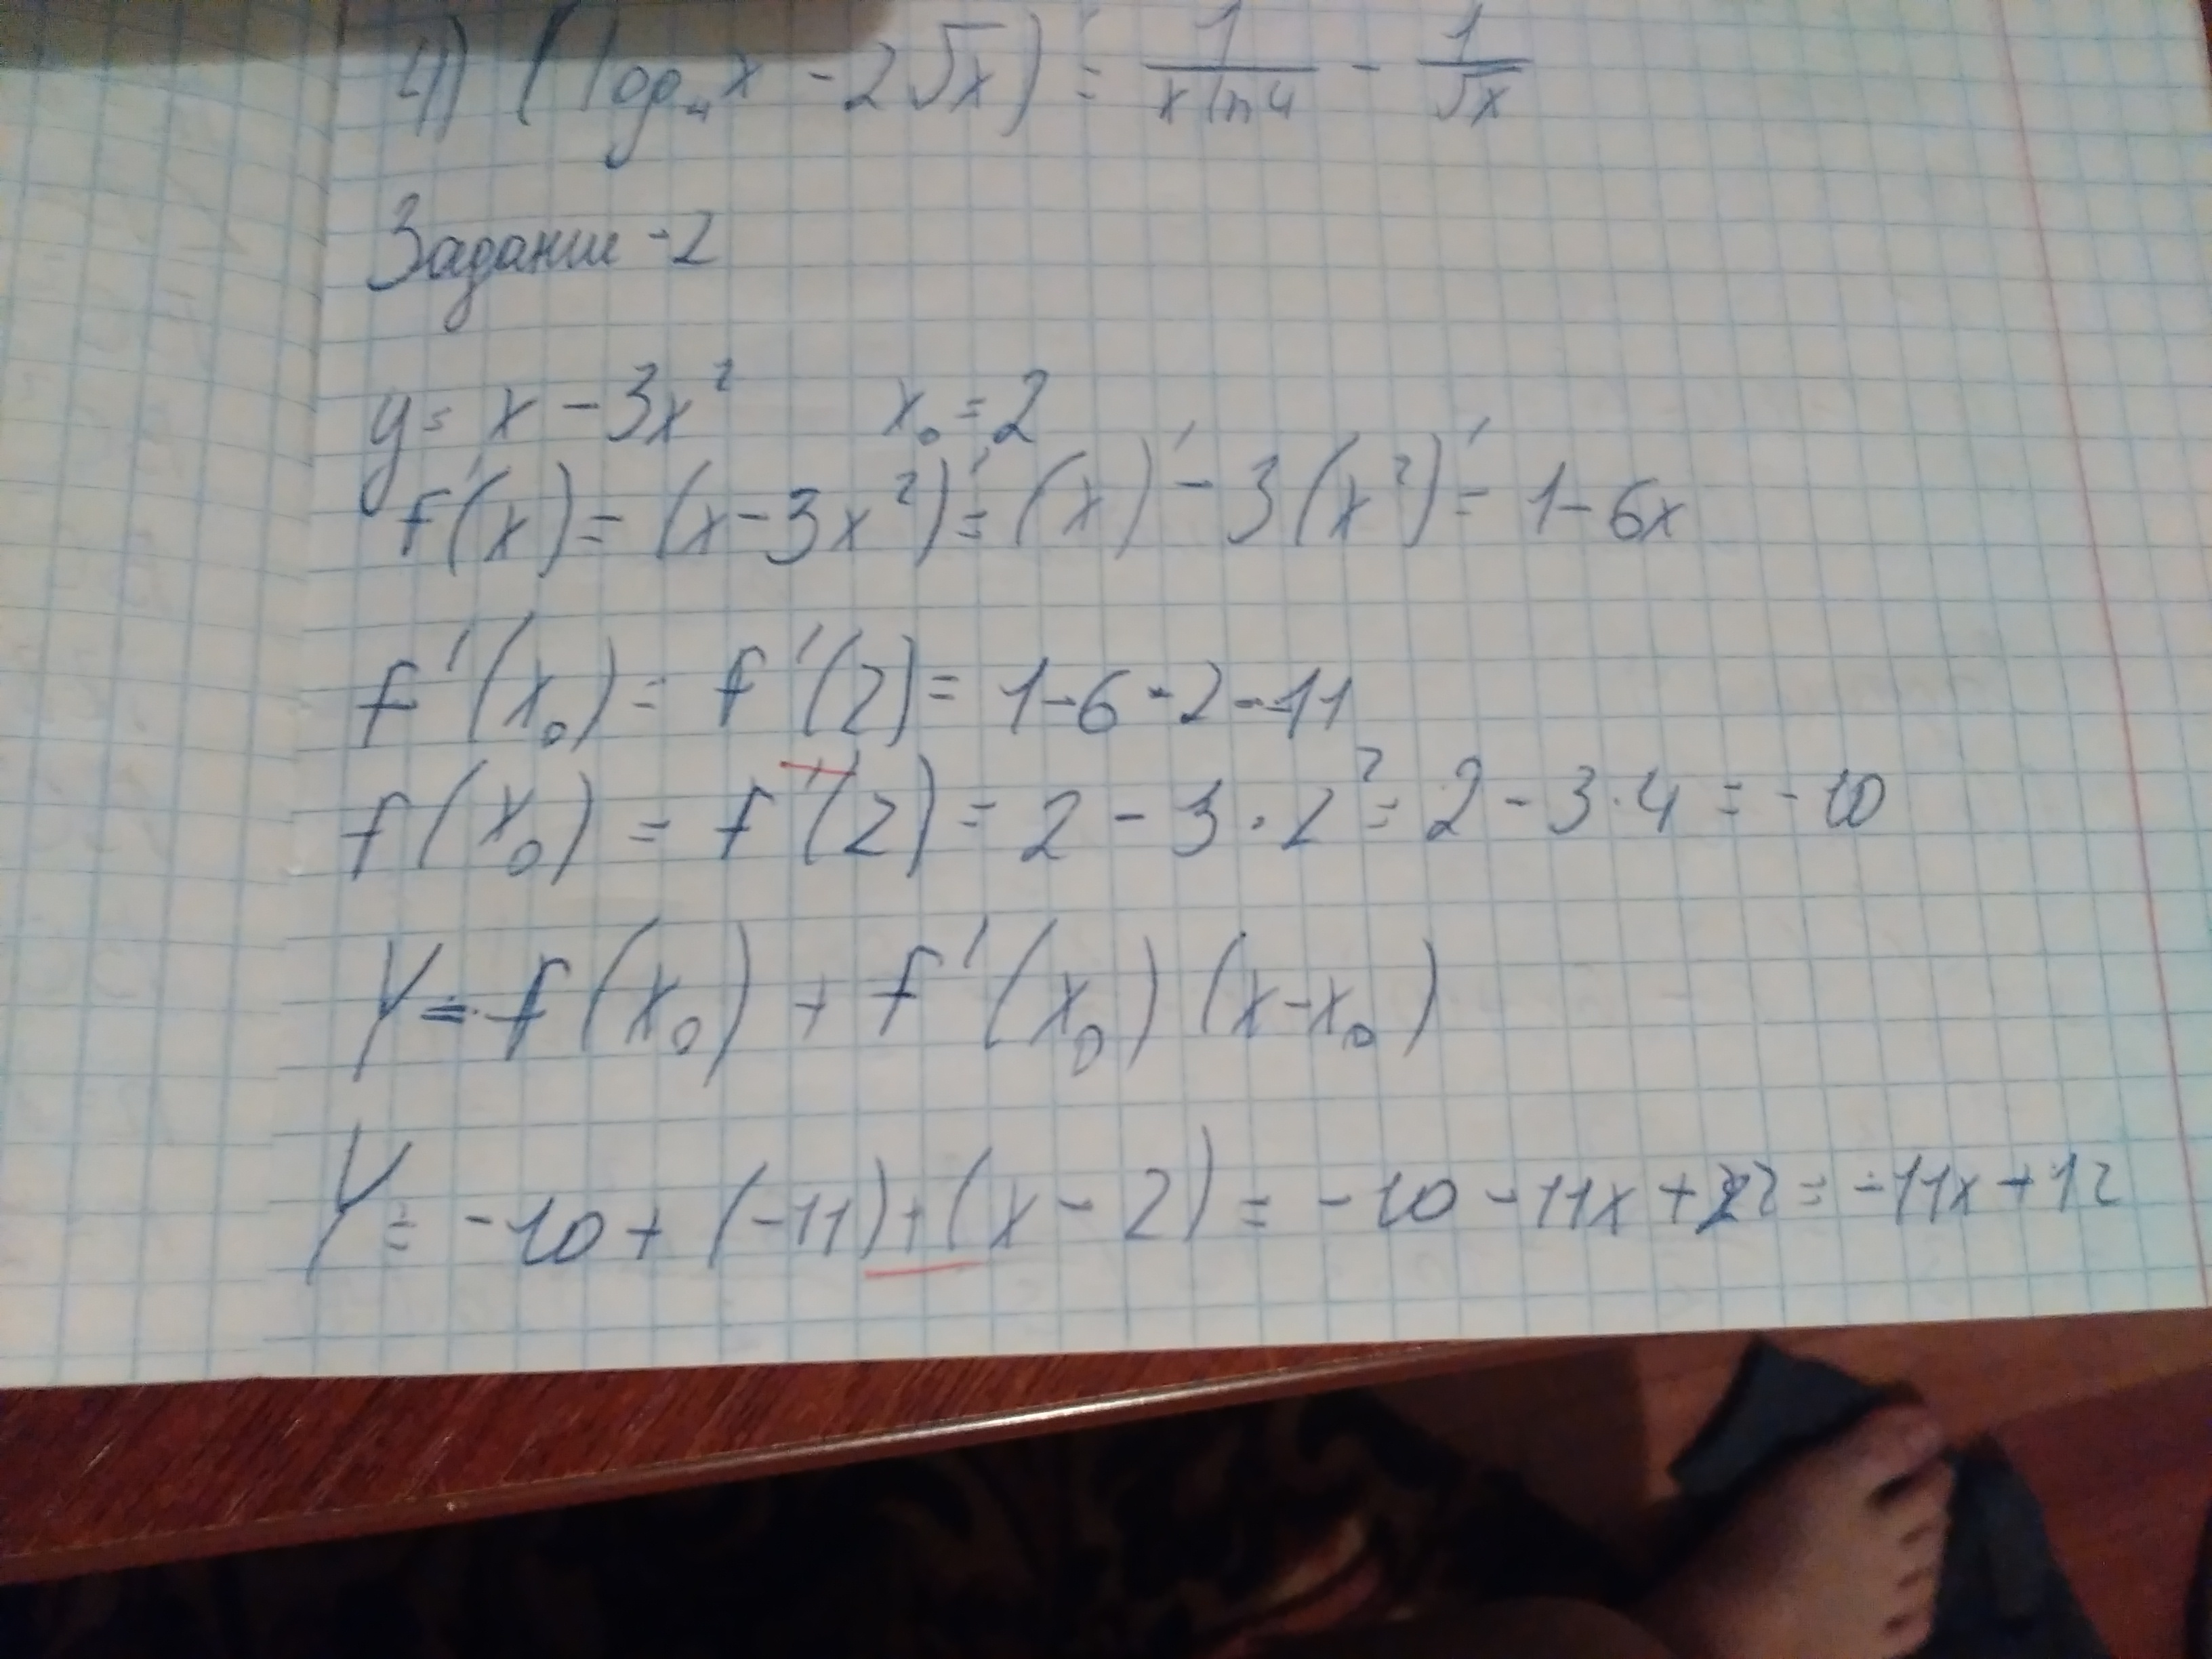 4) (log₄x - 2√x)' = 1/(x ln4) - 1/√x
Задание -2
y = x - 3x² x₀ = 2
f'(x) = (x - 3x²)' = (x)' - 3(x²)' = 1 - 6x
f'(x₀) = f'(2) = 1 - 6 · 2 = -11
f(x₀) = f'(2) = 2 - 3 · 2² = 2 - 3 · 4 = -10
Y = f(x₀) + f'(x₀) (x - x₀)
Y = -10 + (-11) + (x - 2) = -10 - 11x + 22 = -11x + 12